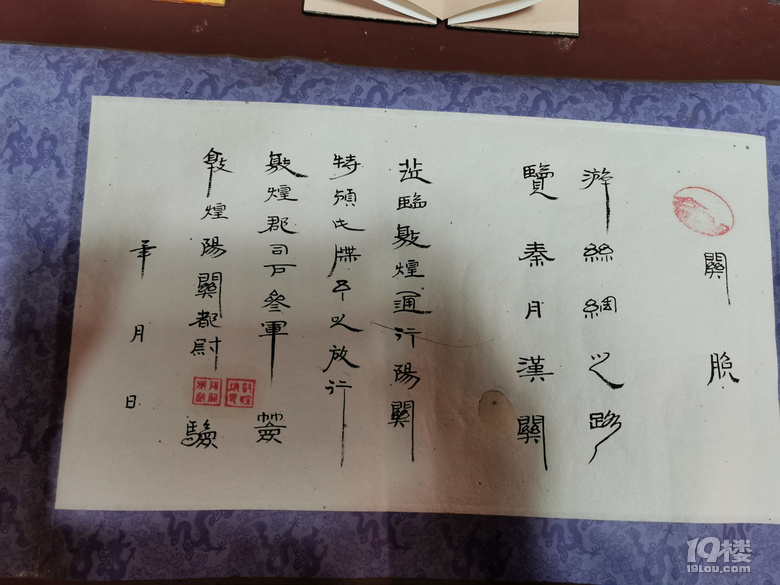 關
游絲綢之路
覽秦月漢關
蒞臨敦煌通行陽關
特頒此牒予以放行
敦煌郡司戶參軍 簽
敦煌陽關都尉 驗
年 月 日
19楼
19lou.com